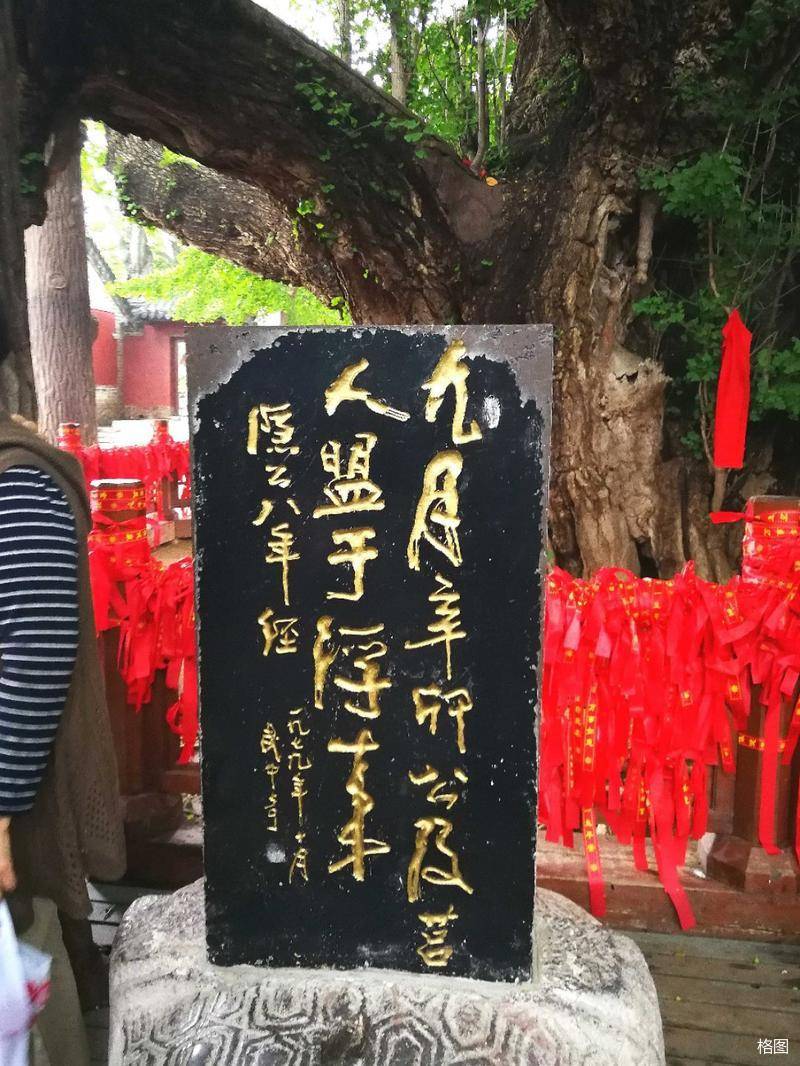 九月辛卯公及莒
人盟于浮来
隐公八年经
一九七九年十月
格图